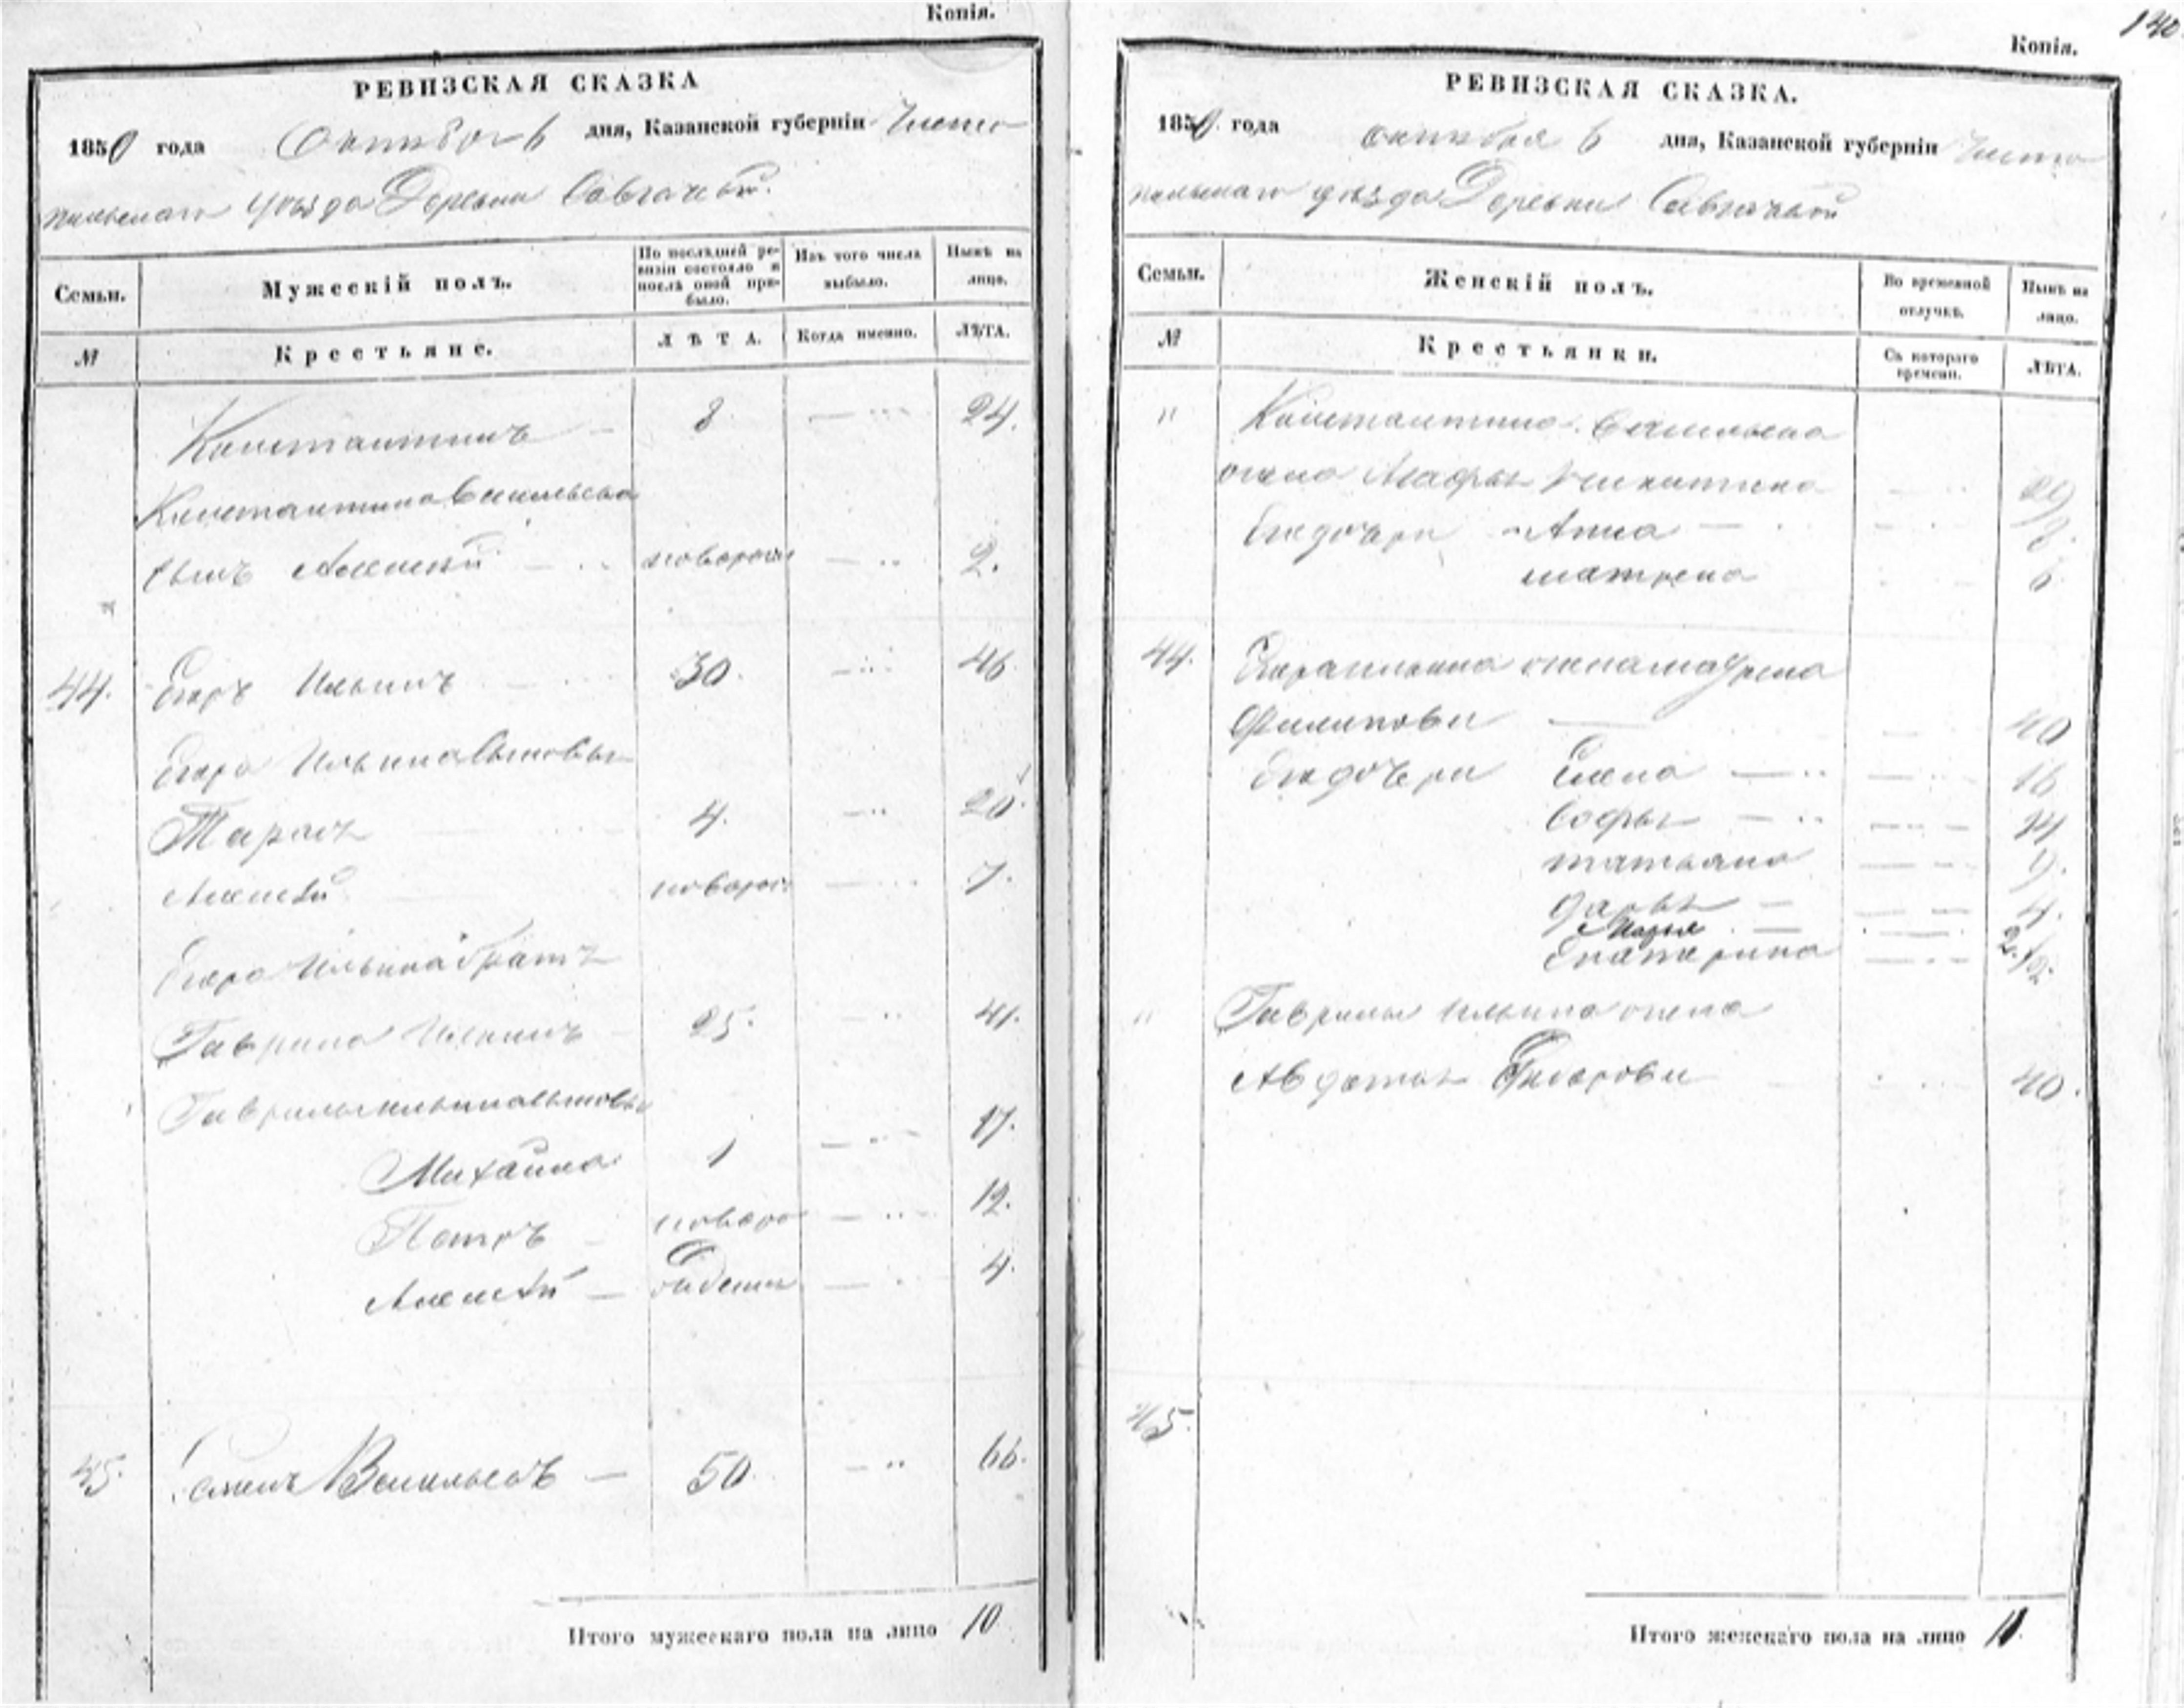 Копія.
РЕВИЗСКАЯ СКАЗКА
1850 года Октября 6 дня, Казанской губерніи Чисто
польскаго уѣзда Деревни
Семьи. Мужескій полъ. По послѣдней ре-визіи состояло и послѣ оной при-было. Изъ того числа выбыло. Нынѣ на лицо.
№ Крестьяне. ЛѢТА. Когда именно. ЛѢТА.
Константинъ — 8. — 24.
Константина Васильева
сынъ Алексѣй — новорож — 2.
44. Егоръ Ильинъ — 30. — 46
Егора Ильина сыновья
Тарасъ 4. — 20.
Алексѣй новорож — 7.
Егора Ильина братъ
Гаврила Ильинъ — 25. — 41.
Гаврилы Ильина сыновья
Михайла 1 — 17.
Петръ — новоро — 12.
Алексѣй — — 4.
45. Семенъ Васильевъ — 50 — 66.
Итого мужескаго пола на лицо 10
140
Копія.
РЕВИЗСКАЯ СКАЗКА.
1850 года октября 6 дня, Казанской губерніи Чисто
польскаго уѣзда Деревни
Семьи. Женскій полъ. Во временной отлучкѣ. Нынѣ на лицо.
№ Крестьянки. Съ котораго времени. ЛѢТА.
" Константина Васильева
жена Никитина — 29
Его дочери Анна — — 8.
матрена 6
44. Егора ильина жена мафрена
Филипова — — 40
Его дочери Елена — — 16
Софья — — 14
татьяна — 9.
дарья — — 4.
Марья — — 2.
Екатерина — 1/2.
" Гаврилы Ильина жена
Авдотья Федорова 40.
45.
Итого женскаго пола на лицо 11.